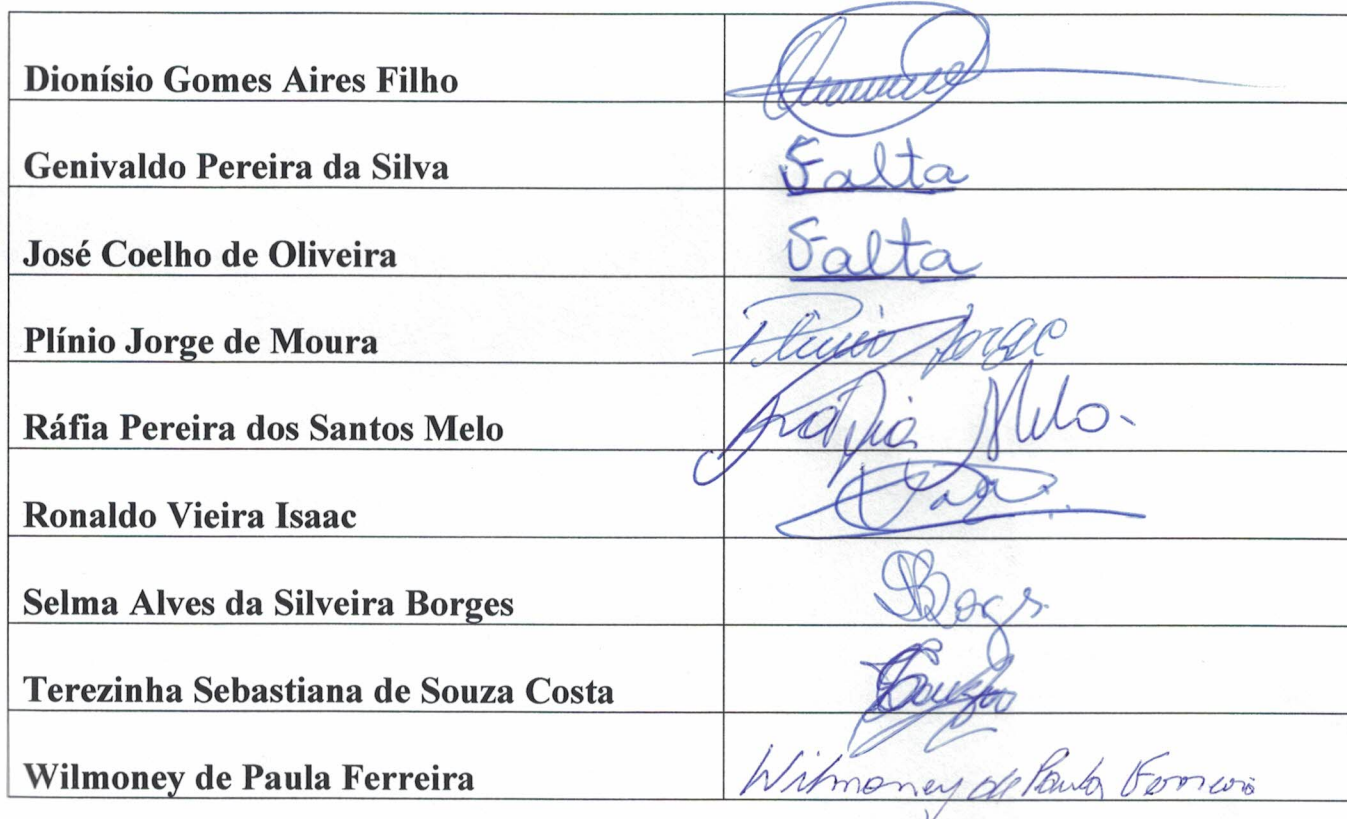 Dionísio Gomes Aires Filho
Genivaldo Pereira da Silva Falta
José Coelho de Oliveira Falta
Plínio Jorge de Moura Plinio Jorge
Ráfia Pereira dos Santos Melo Ráfia Melo
Ronaldo Vieira Isaac
Selma Alves da Silveira Borges SBorges
Terezinha Sebastiana de Souza Costa
Wilmoney de Paula Ferreira Wilmoney de Paula Ferreira